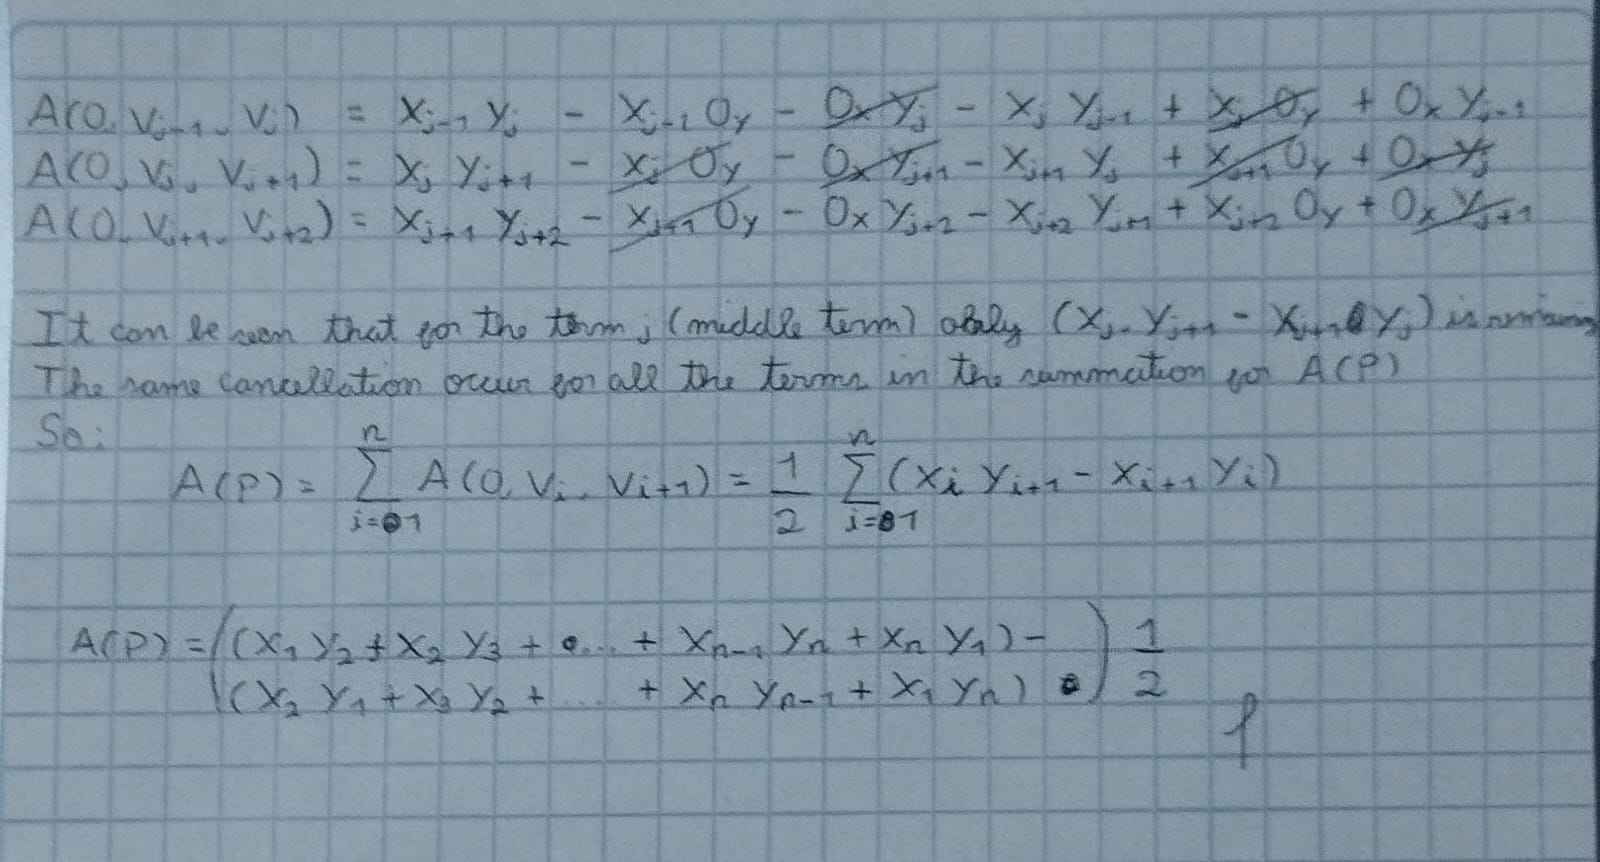 A(O, V_{j-1}, V_j) = X_{j-1} Y_j - X_{j-1} O_y - O_x Y_j - X_j Y_{j-1} + X_j O_y + O_x Y_{j-1}
A(O, V_j, V_{j+1}) = X_j Y_{j+1} - X_j O_y - O_x Y_{j+1} - X_{j+1} Y_j + X_{j+1} O_y + O_x Y_j
A(O, V_{j+1}, V_{j+2}) = X_{j+1} Y_{j+2} - X_{j+1} O_y - O_x Y_{j+2} - X_{j+2} Y_{j+1} + X_{j+2} O_y + O_x Y_{j+1}
It can be seen that for the term j (middle term) only (X_j Y_{j+1} - X_{j+1} Y_j) is remaining
The same cancellation occur for all the terms in the summation for A(P)
So:
A(P) = \sum_{i=1}^{n} A(O, V_i, V_{i+1}) = \frac{1}{2} \sum_{i=1}^{n} (X_i Y_{i+1} - X_{i+1} Y_i)
A(P) = ((X_1 Y_2 + X_2 Y_3 + ... + X_{n-1} Y_n + X_n Y_1) -
(X_2 Y_1 + X_3 Y_2 + .... + X_n Y_{n-1} + X_1 Y_n)) \frac{1}{2}